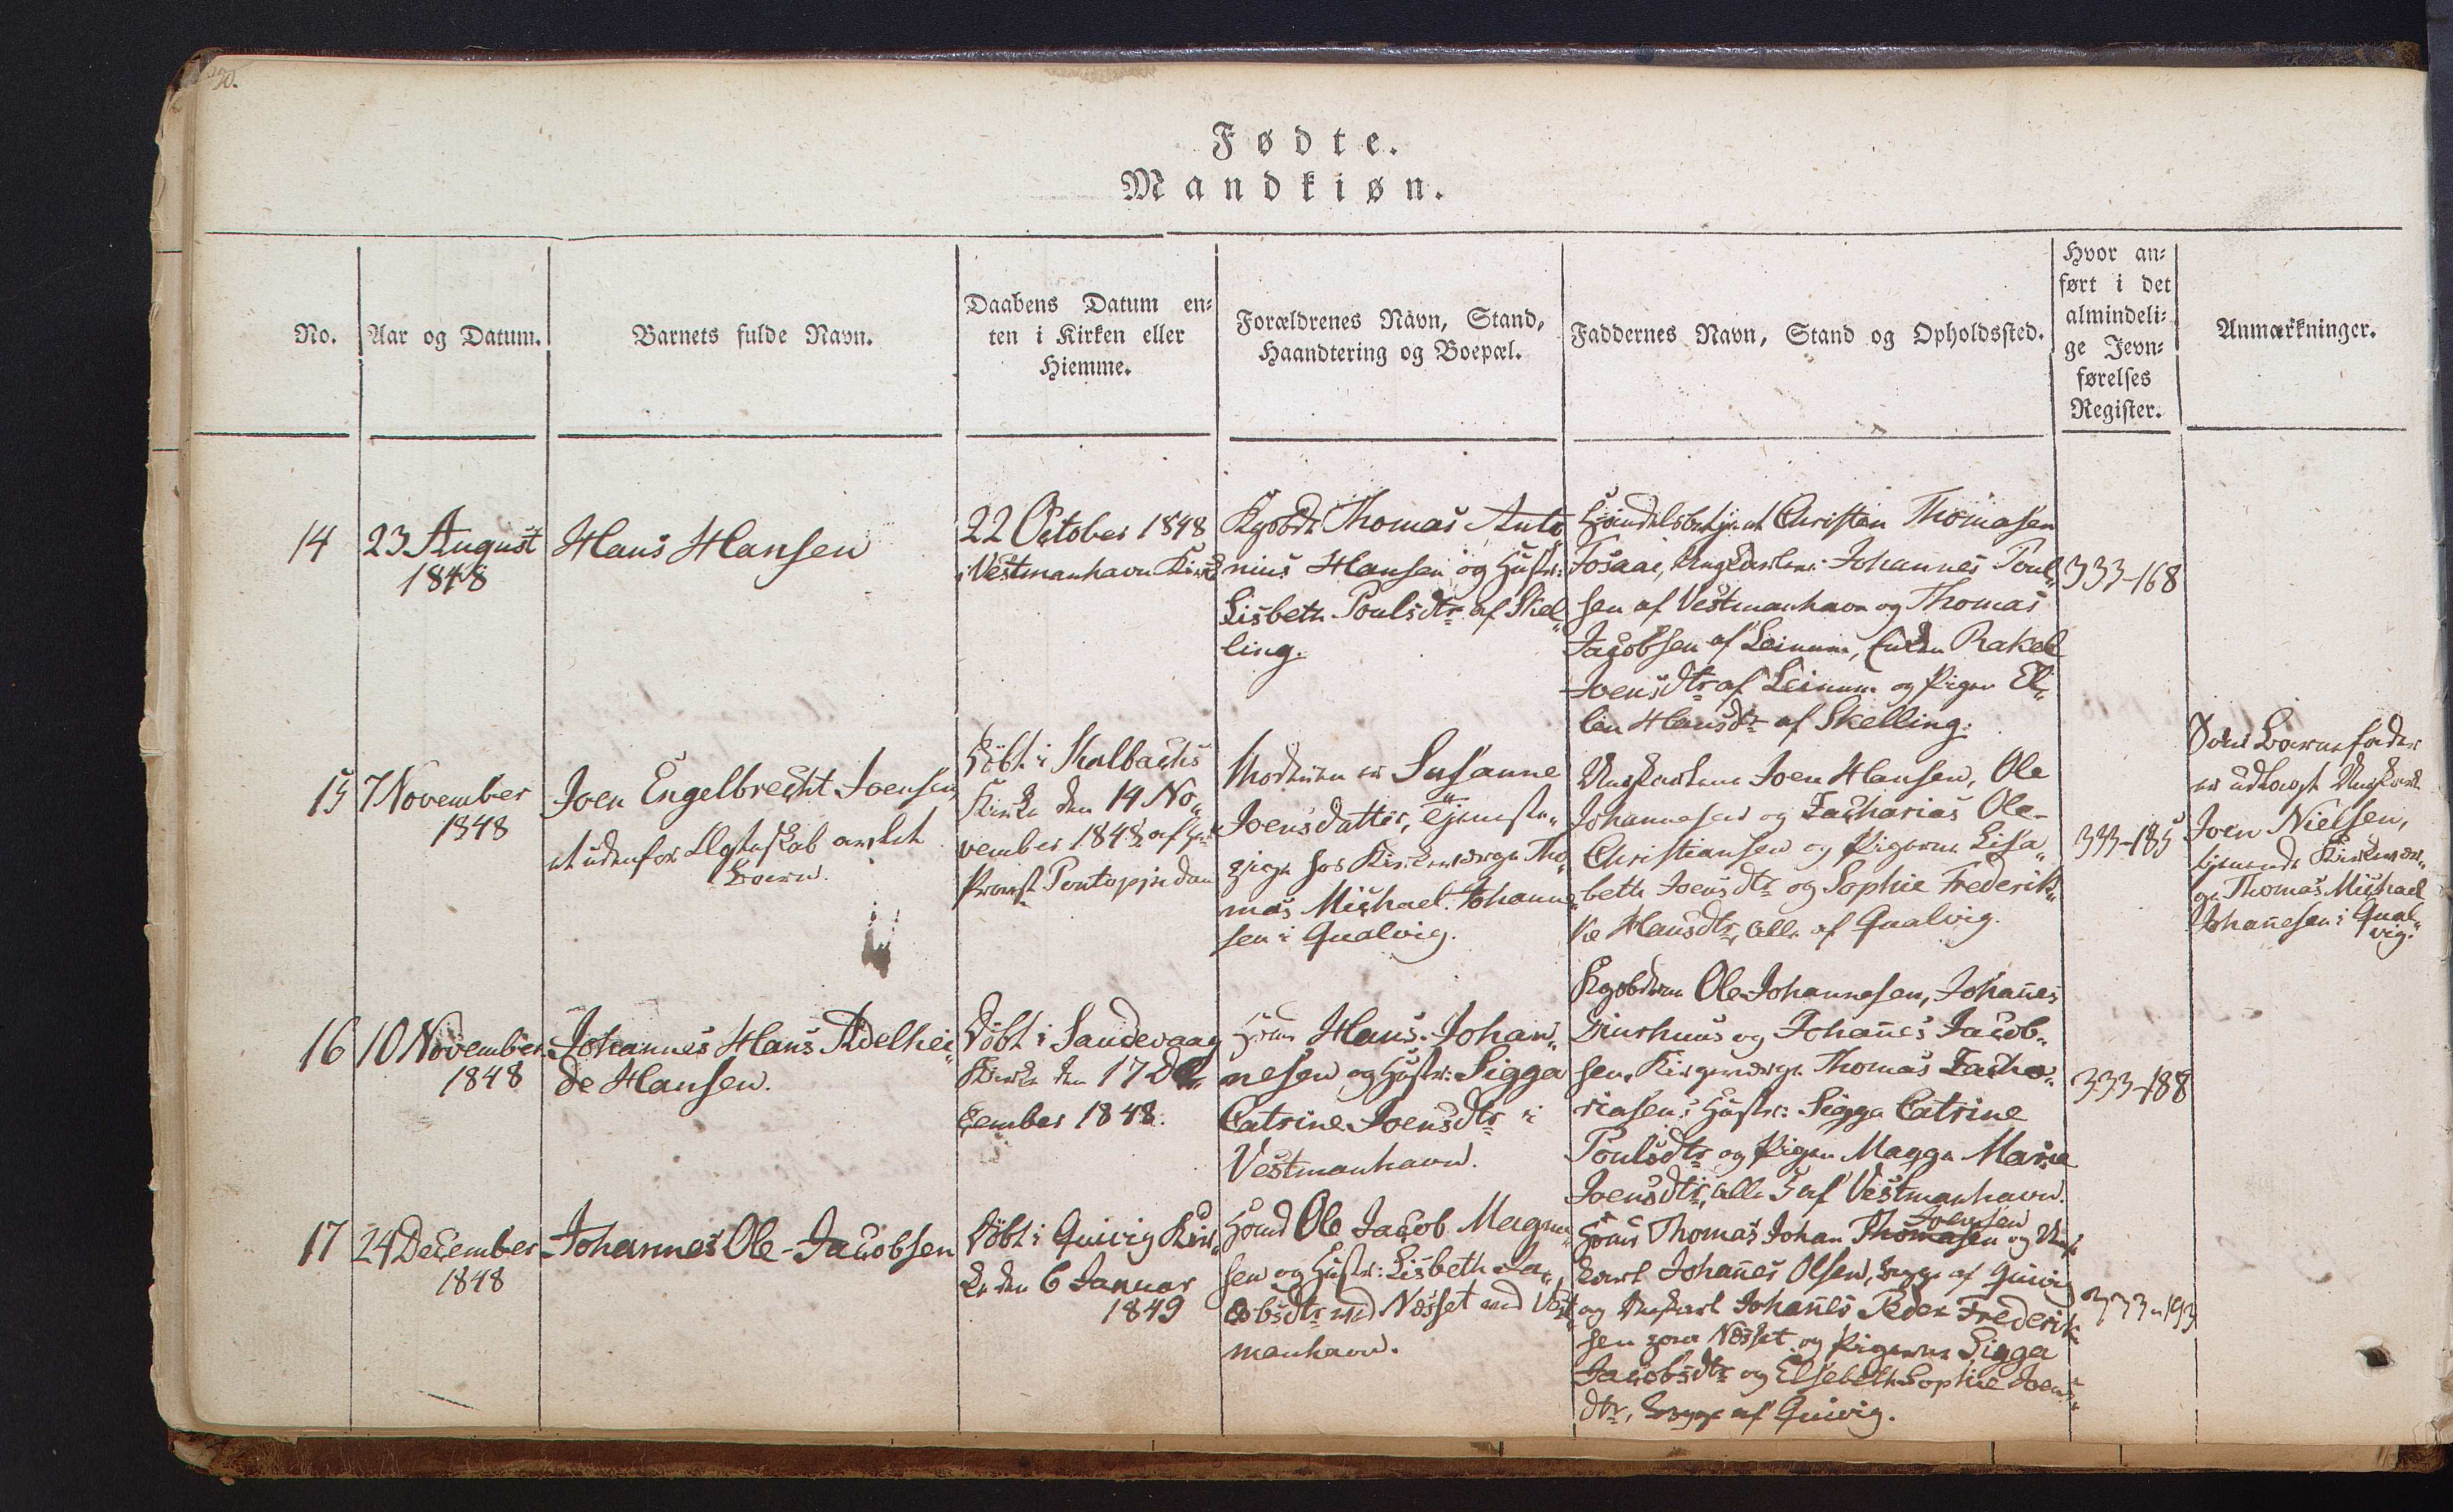 30.
Fødte.
Mandkiøn.
No.
Aar og Datum.
Barnets fulde Navn.
Daabens Datum en-
ten i Kirken eller
Hiemme.
Forældrenes Navn, Stand,
Haandtering og Boepæl.
Faddernes Navn, Stand og Opholdssted.
Hvor an-
ført i det
almindeli-
ge Jevn-
førelses
Register.
Anmærkninger.
14
23 August
1848
Hans Hansen
22 October 1848
i Vestmanhavn Kirke
Kgsbdr Thomas Anto
nius Hansen og Hustr:
Lisbeth Poulsdtr af Skel
ling.
Handelsbetjent Christen Thomasen
Fosaae, Ungkarlene Johannes Poul
sen af Vestmanhavn og Thomas
Jacobsen af Leinum, Enken Rakel
Joensdtr af Leinum og Pigen El
len Hansdtr af Skelling.
333-168
15
7 November
1848
Joen Engelbrecht Joensen,
et udenfor Ægteskab avlet
Barn.
Døbt i Kalbachs
Kirke den 14 No
vember 1848 af Hr
Provst Pontopidan
Moderen er Susanne
Joensdatter, Tjeneste
pige hos Kirkeværge Tho
mas Michael Johanne
sen i Qualvig.
Ungkarlene Joen Hansen, Ole
Johannesen og Zacharias Ole-
Christiansen og Pigerne Lisa
beth Joensdtr og Sophie Frederik
ke Hansdtr, Alle af Qualvig.
333-185
Som Barnefader
er udlagt Ungkarl
Joen Nielsen,
tjenende Kirkevær
ge Thomas Michael
Johanesen i Qual
vig.
16
10 November
1848
Johannes Hans Adelhei
de Hansen.
Døbt i Sandevaag
Kirke den 17 De
cember 1848.
Hmd Hans Johan
nesen og Hustr: Sigga
Catrine Joensdtr i
Vestmanhavn.
Kgsbdrne Ole Johannesen, Johanes
og Johanes Jacob
sen, Kirkeværge Thomas Zacha
riasens Hustr: Sigga Catrine
Poulsdtr og Pigen Magga Maria
Joensdtr, alle 5 af Vestmanhavn.
333-188
17
24 December
1848
Johannes Ole-Jacobsen
Døbt i Quivig Kir
ke den 6 Januar
1849
Hmd Ole Jacob Magnu
sen og Hustr: Lisbeth Ja
cobsdtr ved Næsset ved Vest
manhavn.
Joensen
Hmd Thomas Johan Thomasen og Ung
karl Johanes Olsen, begge af Quivig
og Ungkarl Johanes Peder Frederik
sen paa Næsset og Pigerne Sigga
Jacobsdtr og Elsebeth Sophie Joens
dtr, begge af Quivig.
333-193